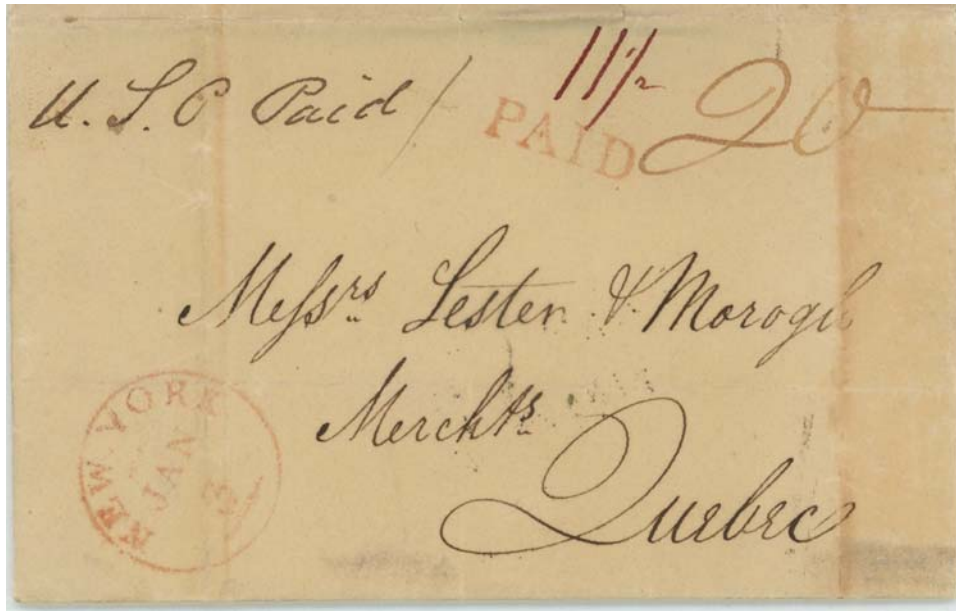 U. S. P Paid /
11½
PAID
20
Messrs Lester & Morogh
Merchts
Quebec
NEW YORK
JAN